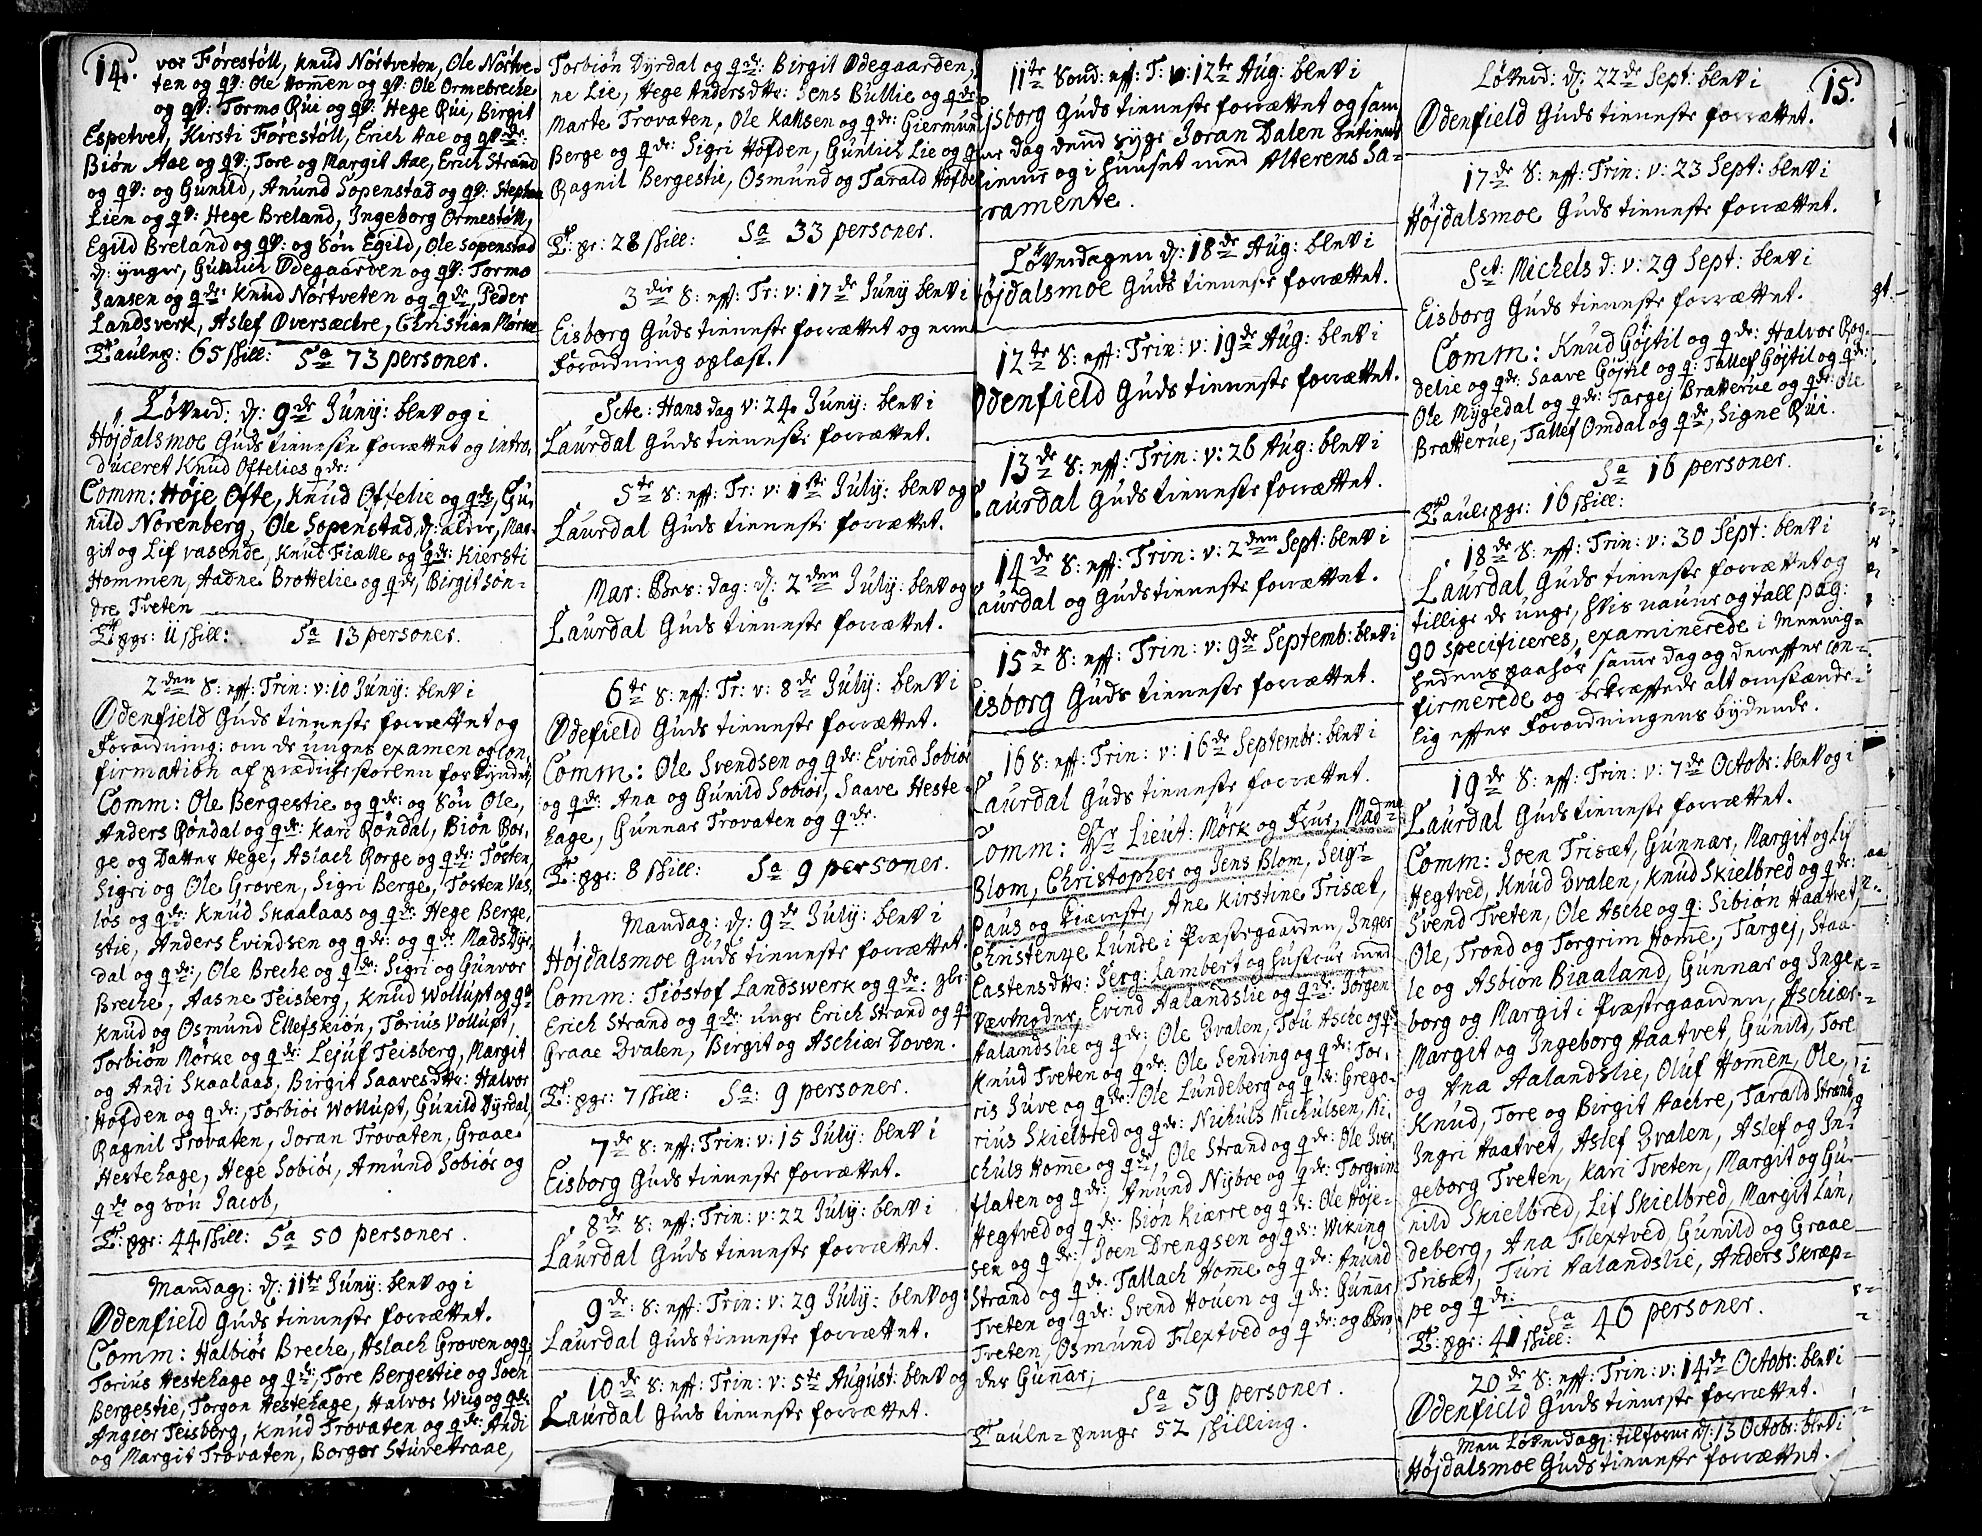 14.
vor Förestöll, Knud Nörtveten, Ole Nörtve-
ten og qv: Ole Hom̄en og qv: Ole Ormebrecke
og qv: Tormo Rúi og qv: Hege Rúi, Birgit
Espetvet, Kirsti Förestöll, Erich Aae og qv de:
Biön Aae og qv: Tore og Margit Aae, Erich Strand
og qv: og Gunild, Anund Sopenstad og qv: Stephan
Lien og qv: Hege Breland, Ingeborg Ormestöll,
Egild Breland og qv: og Sön Egild, Ole Sopenstad
d: ynger, Gunlich Ødegaarden og qv: Tormo
Jansen og qde: Knud Nörtveten og qde, Peder
Landsverk, Aslef Oversæchre, Christian Mörke
St: aulep: 65 skill: Sa 73 personer.
Löverd: d: 9de Junij: blev og i
Höjdalsmoe Guds tieneste forrættet og intro,
duceret Knud Oftelies qde:
Comm: Höje Ofte, Knud Oftelie og qde, Gu,
nild Norenberg, Ole Sopenstad d: ælder, Mar-
git og Lif vasende, Knud Fiælle og qde: Kiersti
Hommen, Aadne Brottelie og qde, Birgit Son-
dre Tveten
St: pgr: 11 skill: Sa 13 personer.
2den S: eff: Trin: v: 10 Junij: blev i
Ødenfield Guds tieneste forrættet og
Forordning: om de unges examen og con,
firmation af prædichestoelen forkyndet,
Comm: Ole Bergestie og qde: og Sön Ole,
Anders Röndal og qde: Kari Röndal, Biön Ror,
ge og Datter Hege, Aslach Rorge og qde: Tosten,
Sigri og Ole Groven, Sigri Berge, Tosten Vas,
lös og qde: Knud Skaalaas og qde: Hege Berge,
stie, Anders Evindsen og qde: og qde: Mads Dyr,
dal og qde:, Ole Breche og qde: Sigri og Gunvor
Breche, Aasne Teisberg, Knud Wollupt og qde
Knud og Osmund Ellefskiön, Torius Vollupt,
Torbiön Mörke og qde: Lejuf Teisberg, Margit
og Andi Skaalaas, Birgit Saavesdttr: Halvor
Höfden og qde:, Torbiör Wollupt, Gunild Dyrdal,
Ragnil Trovaten, Joran Trovaten, Graae
Hestehage, Hege Sobiör, Amund Sobiör og
qde og sön Jacob,
St: pgr: 44 skill: Sa 50 personer.
Mandag: d: 11te Junij: blev og i
Ødenfield Guds tieneste forrættet.
Comm: Halbiör Breche, Aslach Groven og q,
Torius Hestehage og qde: Tore Bergestie og Joen
Bergestie, Torgon Hestehage, Halvor Wug og qde:
Angier Teisberg, Knud Trovaten og qde: Andi
og Margit Trovaten, Borger Stuvetraae,
Torbiön Dyrdal og qde: Birgit Ødegaarden,
ne Lie, Hege Andersdttr: Jens Bullie og qde
Marte Trovaten, Ole Kallsen og qde: Giermund
Berge og qde: Sigri Höfden, Gunlich Lie og q
Ragnil Bergestie, Osmund og Tarald Höfde
St: pr: 28 skill: Sa 33 personer.
3die S: eff: Tr: v: 17de Junij blev i
Eisborg Guds tieneste forrættet og
Forordning oplæst.
Scte: Hans dag v: 24. Junij: blev i
Laurdal Guds tieneste forrættet.
5te S: eff: Tr: v: 1ste Julij: blev og
Laurdal Guds tieneste forrættet.
Mar: Bes: dag: d: 2den Julij: blev og
Laurdal Guds tieneste forrættet.
6te S: eff: Tr: v: 8de Julij: blev i
Ødefield Guds tieneste forrættet.
Comm: Ole Svendsen og qde: Evind Sobiör
og qde: Ana og Gunild Sobiör, Saave Heste-
hage, Gunnar Trovaten og qde:
St: pgr: 8 skill: Sa 9 personer.
Mandag: d: 9de Julij: blev i
Höjdalsmoe Guds tieneste forrættet.
Comm: Tiöstof Landswerk og qde:
Erich Strand og qde: unge Erich Strand og q
Graae Dvalen, Birgit og Aschiær Doven.
St: pgr: 7 skill: Sa: 9 personer.
7de S: eff: Trin: v: 15 Julij: blev i
Eisborg Guds tieneste forrættet.
8de S: eff: Trin: v: 22 Julij: blev i
Laurdal Guds tieneste forrættet.
9de: S: eff: Trin: v: 29 Julij: blev og
Laurdal Guds tieneste forrættet.
10de S: eff: Trin: v: 5te August: blev og
Laurdal Guds tieneste forrættet.
11te Sond: eff: T: v: 12te Aug: blev i
isborg Guds tieneste forrættet og sam
me dag dend syge Joran Dalen betient
og i huuset med Alterens Sa-
ramente.
Löverdagen d: 18de Aug: blev i
öjdalsmoe Guds tieneste forrættet.
12te S: eff: Trin: v: 19de Aug: blev i
Ødenfield Guds tieneste forrættet.
13de S: eff: Trin: v: 26 Aug: blev i
Laurdal Guds tieneste forrættet.
14de S: eff: Trin: v: 2den Sept: blev i
aurdal og Guds tieneste forrættet.
15de S: eff: Trin: v: 9de Septemb: blev i
isborg Guds tieneste forrættet.
16 S: eff: Trin: v: 16de Septembr: blev i
Laurdal Guds tieneste forrættet.
Comm: Hr Lieut: Mörk og Frue, Madme
Blom, Christopher og Jens Blom, Seigr
Paus og Kiæreste, Ane Kirstine Triset,
Christence Lunde i Præstegaarden, Inger
Castensdttr: Serg: Lambert og hustrue med
Værmoder, Evind Aalandslie og qde: Jörgen
Aalandslie og qde: Ole Dvalen, Tou Asche og q
Knud Tveten og qde: Ole Sending og qde: Tor,
ris Juve og qde: Ole Lundeberg og qde: Grego-
rius Skielbred og qde: Nichuls Nichulsen, Ni,
chuls Hom̄e og qde, Ole Strand og qde: Ole Iver
flaten og qde:, Anund Nyboe og qde: Torgrim
Hegtved og qde: Biön Kiærre og qde: Ole Höje-
sen og qde:, Joen Drengsen og qde: Wiking
Strand og qde: Tallach Hom̄e og qde: Anund
Tveten og qde: Svend Houen og qde: Gun̄ar
Tveten, Osmund Flextved og qde: og Bro,
der Gun̄ar,
Sa 59 personer.
St aule- penge 52 skilling.
15.
Löverd: d: 22de Sept: blev i
Ødenfield Guds tieneste forrættet.
17de S: eff: Trin: v: 23 Sept: blev i
Höjdalsmoe Guds tieneste forrættet.
Sct: Michels d: v: 29 Sept: blev i
Eisborg Guds tieneste forrættet.
Comm: Knud Göjtil og qde: Halvor Rog-
delie og qde: Saave Göjtil og q: Tallef Göjtil og qde:
Ole Mygedal og qde: Targej Bratterue og qde: Ole
Bratterue, Tallef Omdal og qde, Signe Rúi.
Sa 16 personer.
St aule pgr: 16 skill:
18de S: eff: Trin: v: 30 Sept: blev i
Laurdal Guds tieneste forrættet og
tillige de unge, hvis navne og tall pag:
90 specificeres, examinerede i Meenig-
hedens paahör samme dag og derefter con-
firmerede og bekræftede alt omstænde-
lig efter Forordningens bydende.
19de S: eff: Trin: v: 7de Octobr: blev og i
Laurdal Guds tieneste forrættet.
Comm: Joen Trisæt, Gunnar, Margit og Lif
Hegtved, Knud Dvalen, Knud Skielbred og qde:
Svend Tveten, Ole Asche og q: Sibiön Haatvet,
Ole, Trond og Torgrim Hom̄e, Targej, Staa-
le og Asbiön Biaaland, Gunnar og Inge-
borg og Margit i Præstegaarden, Aschiær-
Margit og Ingeborg Haatvet, Gunild, Tore
og Ana Aalandslie, Oluf Hom̄en, Ole,
Knud, Tore og Birgit Aachre, Tarald Strand,
Ingri Haatvet, Aslef Dvalen, Aslef og In-
geborg Tveten, Kari Tveten, Margit og Gu-
nild Skielbred, Lif Skielbred, Margit Lun,
deberg, Ana Flextved, Gunild og Graae
Trisæt, Turi Aalandslie, Anders Skræp-
pe og qde:
Sa 46 personer.
St: pgr: 41 skill:
20de S: eff: Trin: v: 14de Octobr: blev i
Ødenfield Guds tieneste forrættet.
Men Löverdag: tilforne d: 13 Octobr: blev i
Höjdalsmoe Guds tieneste forrættet.